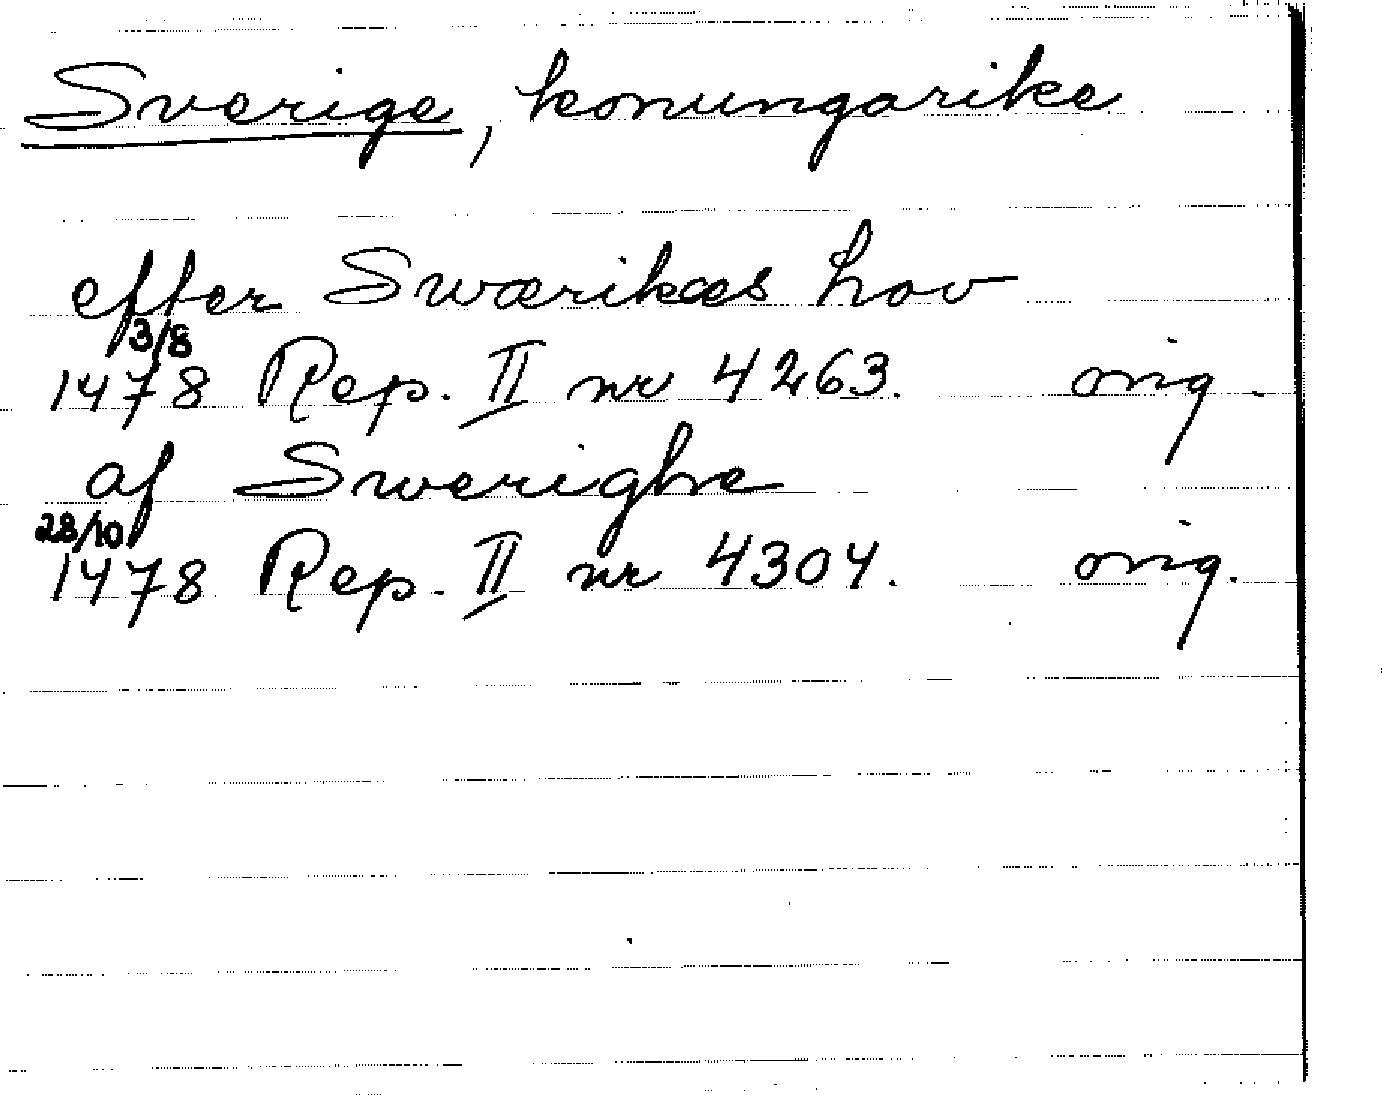 Sverige, konungarike
effer Swærikæs hov
3/8
1478 Rep. II nr 4263. orig.
af Swerighe
28/10
1478 Rep. II nr 4304. orig.